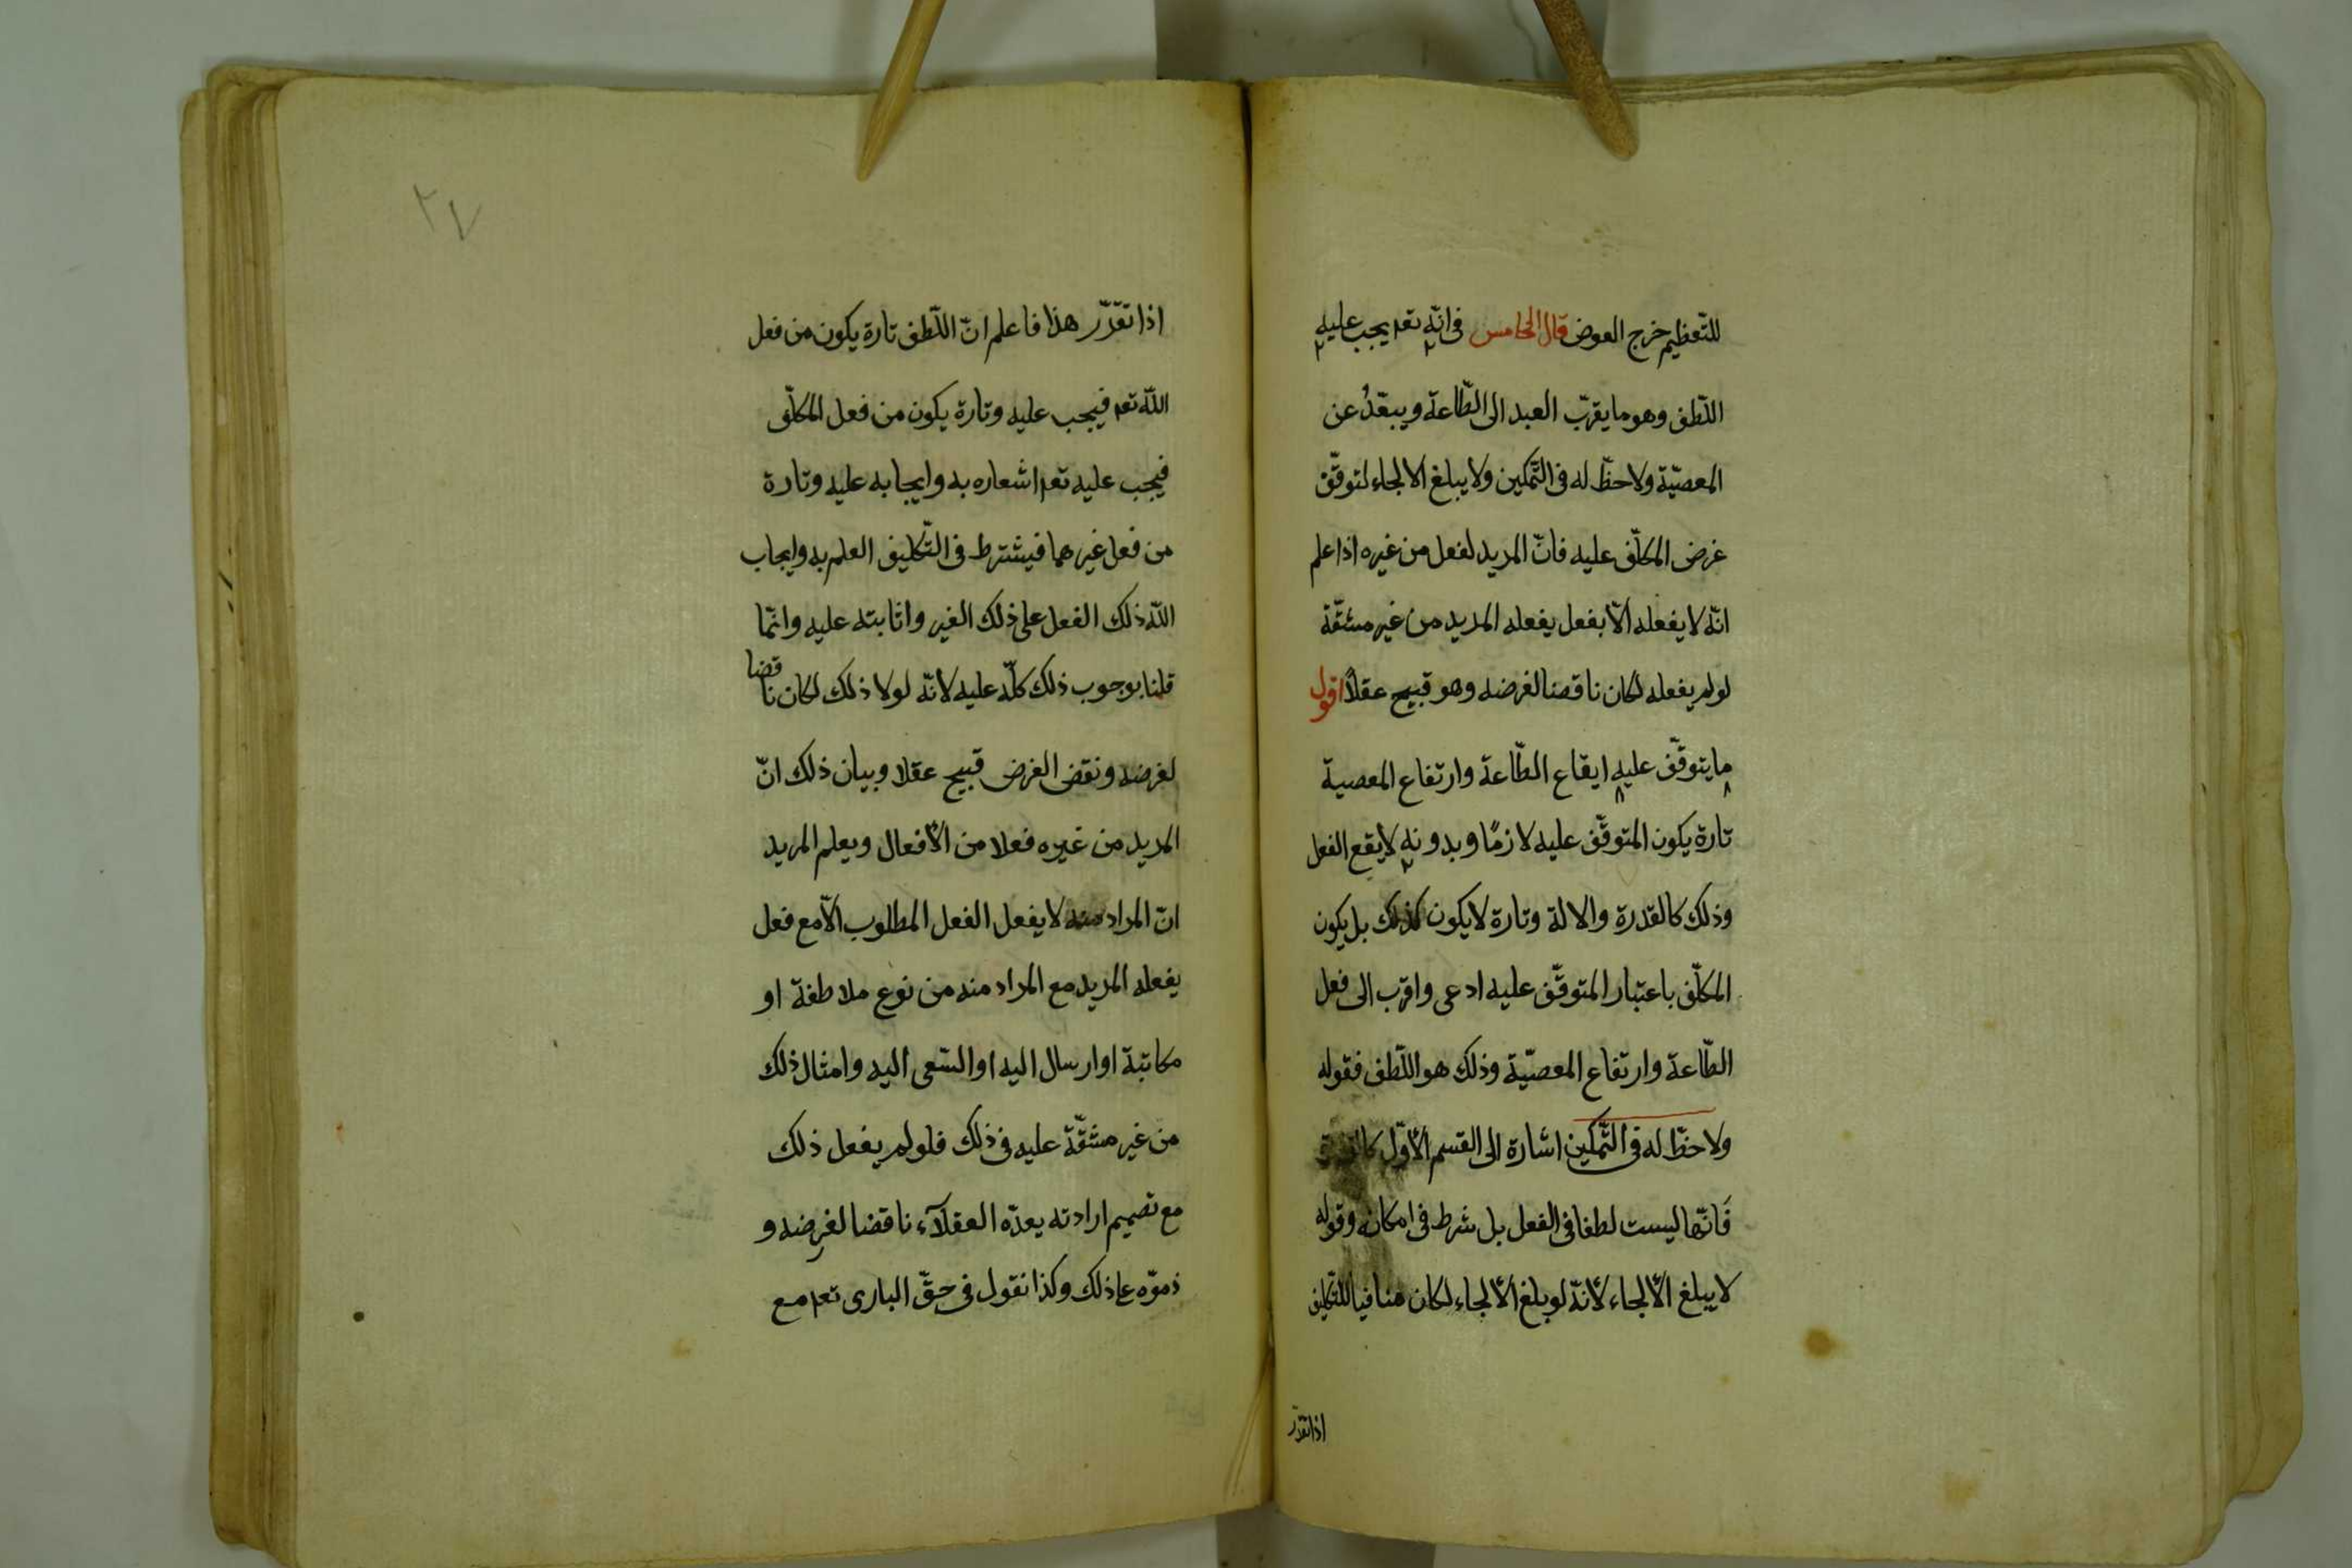 للتّعظيم خرج العوض قال الخامس فى انّه تعم يجب عليه
اللّطف وهو ما يقرّب العبد الى الطّاعة ويبعّدُ عن
المعصيّة ولا حظّ له فى التّمكين ولا يبلغ الالجاء لتوقّف
غرض المكلّف عليه فانّ المريد لفعل من غيره اذا علم
انّه لا يفعله الّا بفعل يفعله المريد من غير مشقّة
لو لم يفعله لكان ناقضا لغرضه وهو قبيح عقلاً اقول
ما يتوقّف عليه ايقاع الطّاعة وارتفاع المعصية
تارة يكون المتوقّف عليه لازمًا وبدونه لا يقع الفعل
وذلك كالقدرة والالة وتارة لا يكون كذلك بل يكون
المكلّف باعتبار المتوقّف عليه ادعى واقرب الى فعل
الطّاعة وارتفاع المعصيّة وذلك هو اللّطف فقوله
ولا حظّ له فى التّمكين اشارة الى القسم الأوّل كالقدرة
فَانّها ليست لطفا فى الفعل بل شرط فى امكانه وقوله
لا يبلغ الألجاء لأنّه لو بلغ الألجاء لكان منافيا للتّكليف
اذا تقرّر
٢٧
اذا تقرّر هذا فاعلم انّ اللّطف تارة يكون من فعل
اللّه تعم فيجب عليه وتارة يكون من فعل المكلّف
فيجب عليه تعم اشعاره به وايجابه عليه وتارة
من فعل غيرهما فيشترط فى التّكليف العلم به وايجاب
اللّه ذلك الفعل على ذلك الغير واثابته عليه وانّما
قلنا بوجوب ذلك كلّه عليه لانّه لولا ذلك لكان ناقضا
لغرضه ونقض الغرض قبيح عقلا وبيان ذلك انّ
المريد من غيره فعلا من الأفعال ويعلم المريد
انّ المراد منه لا يفعل الفعل المطلوب الّا مع فعل
يفعله المريد مع المراد منه من نوع ملاطفة او
مكاتبة او ارسال اليه او السّعى اليه وامثال ذلك
من غير مشقّة عليه فى ذلك فلو لم يفعل ذلك
مع تصميم ارادته يعدّه العقلآء ناقضا لغرضه و
ذموّه على ذلك وكذا نقول فى حقّ البارى تعم مع